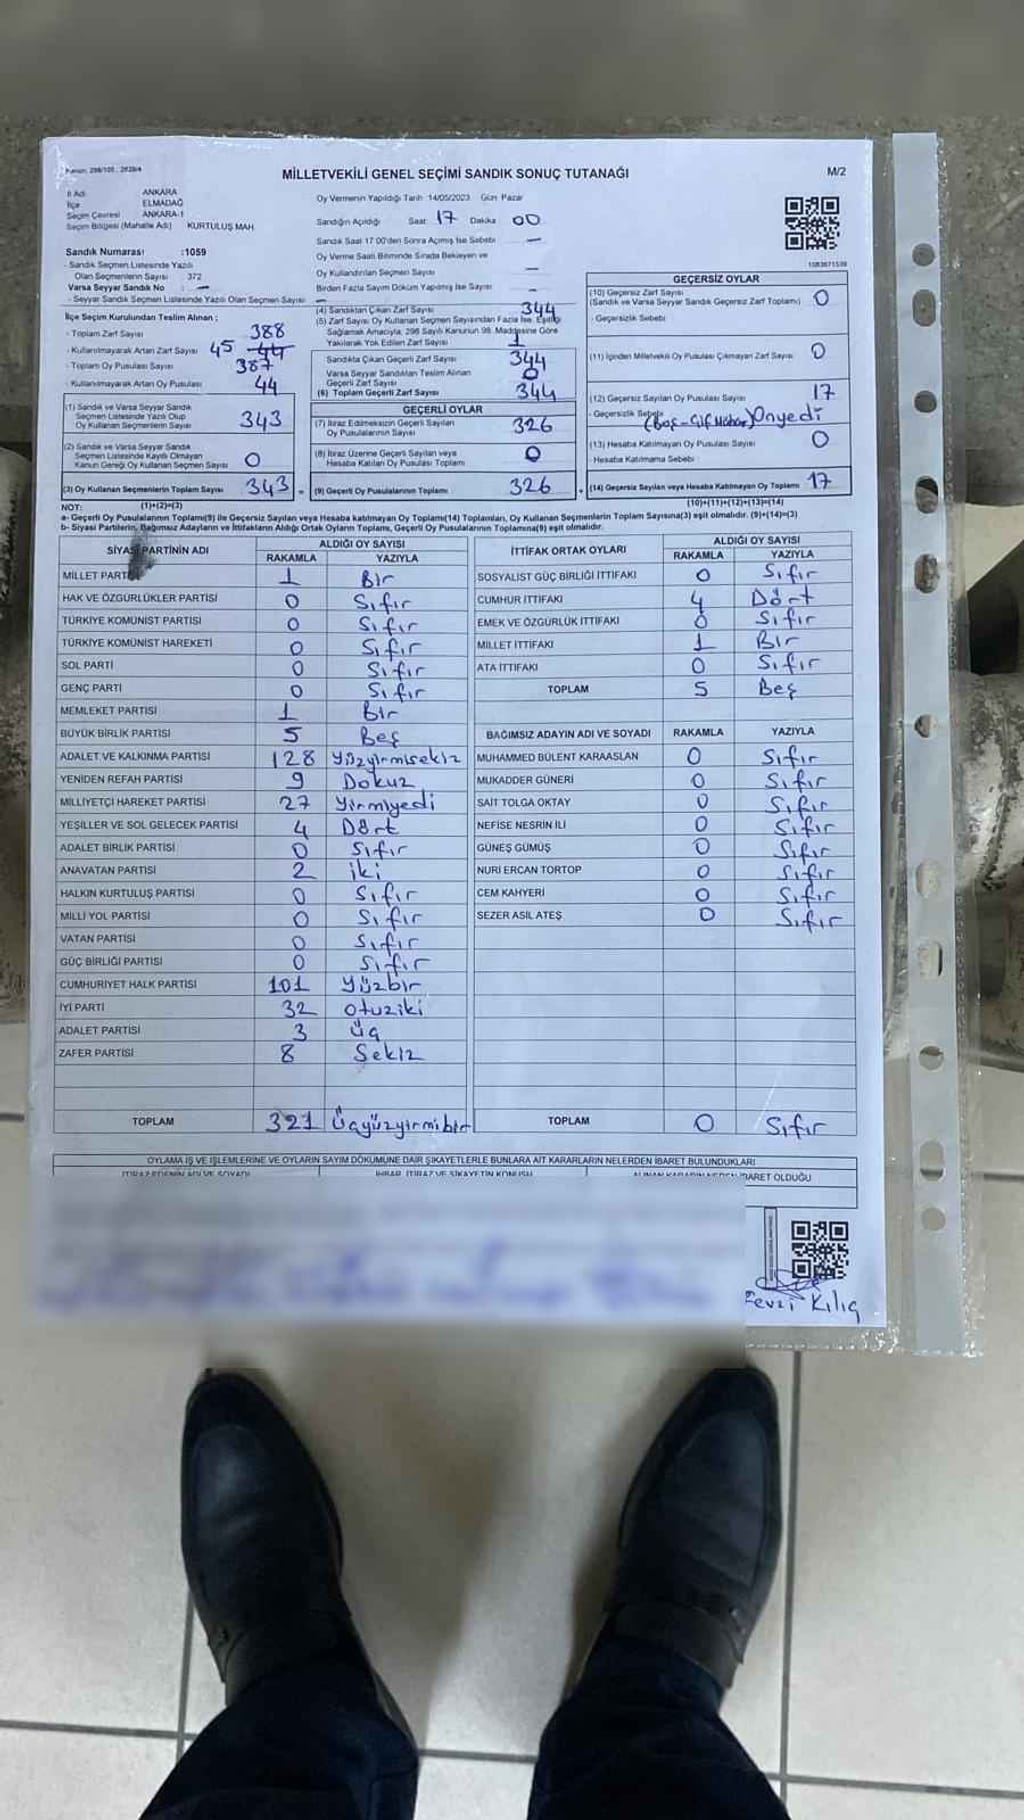 Kanun: 298/105 , 2839/4
MİLLETVEKİLİ GENEL SEÇİMİ SANDIK SONUÇ TUTANAĞI
M/2
İl Adı ANKARA
İlçe ELMADAĞ
Seçim Çevresi ANKARA-1
Seçim Bölgesi (Mahalle Adı) KURTULUŞ MAH
Sandık Numarası :1059
- Sandık Seçmen Listesinde Yazılı
Olan Seçmenlerin Sayısı 372
Varsa Seyyar Sandık No : —
- Seyyar Sandık Seçmen Listesinde Yazılı Olan Seçmen Sayısı : —
İlçe Seçim Kurulundan Teslim Alınan ;
- Toplam Zarf Sayısı 388
- Kullanılmayarak Artan Zarf Sayısı 45 44
- Toplam Oy Pusulası Sayısı 387
- Kullanılmayarak Artan Oy Pusulası 44
(1) Sandık ve Varsa Seyyar Sandık
Seçmen Listesinde Yazılı Olup
Oy Kullanan Seçmenlerin Sayısı 343
(2) Sandık ve Varsa Seyyar Sandık
Seçmen Listesinde Kayıtlı Olmayan
Kanun Gereği Oy Kullanan Seçmen Sayısı 0
(3) Oy Kullanan Seçmenlerin Toplam Sayısı 343 =
(1)+(2)=(3)
Oy Vermenin Yapıldığı Tarih 14/05/2023 Gün Pazar
Sandığın Açıldığı Saat 17 Dakika 00
Sandık Saat 17:00'den Sonra Açılmış İse Sebebi —
Oy Verme Saati Bitiminde Sırada Bekleyen ve
Oy Kullandırılan Seçmen Sayısı —
Birden Fazla Sayım Döküm Yapılmış İse Sayısı —
(4) Sandıktan Çıkan Zarf Sayısı 344
(5) Zarf Sayısı Oy Kullanan Seçmen Sayısından Fazla İse, Eşitliği
Sağlamak Amacıyla, 298 Sayılı Kanunun 98. Maddesine Göre
Yakılarak Yok Edilen Zarf Sayısı 1
Sandıkta Çıkan Geçerli Zarf Sayısı 344
Varsa Seyyar Sandıktan Teslim Alınan
Geçerli Zarf Sayısı 0
(6) Toplam Geçerli Zarf Sayısı 344
GEÇERLİ OYLAR
(7) İtiraz Edilmeksizin Geçerli Sayılan
Oy Pusulalarının Sayısı 326
(8) İtiraz Üzerine Geçerli Sayılan veya
Hesaba Katılan Oy Pusulası Toplamı 0
(9) Geçerli Oy Pusulalarının Toplamı 326 +
GEÇERSİZ OYLAR
(10) Geçersiz Zarf Sayısı
(Sandık ve Varsa Seyyar Sandık Geçersiz Zarf Toplamı) 0
- Geçersizlik Sebebi :
(11) İçinden Milletvekili Oy Pusulası Çıkmayan Zarf Sayısı 0
(12) Geçersiz Sayılan Oy Pusulası Sayısı 17
- Geçersizlik Sebebi (Boş-Çift Mühür) Onyedi
(13) Hesaba Katılmayan Oy Pusulası Sayısı 0
- Hesaba Katılmama Sebebi :
(14) Geçersiz Sayılan veya Hesaba Katılmayan Oy Pusulası Toplamı 17
(10)+(11)+(12)+(13)=(14)
NOT:
a- Geçerli Oy Pusulalarının Toplamı(9) ile Geçersiz Sayılan veya Hesaba katılmayan Oy Toplamı(14) Toplamları, Oy Kullanan Seçmenlerin Toplam Sayısına(3) eşit olmalıdır. (9)+(14)=(3)
b- Siyasi Partilerin, Bağımsız Adayların ve İttifakların Aldığı Ortak Oyların Toplamı, Geçerli Oy Pusulalarının Toplamına(9) eşit olmalıdır.
SİYASİ PARTİNİN ADI ALDIĞI OY SAYISI
RAKAMLA YAZIYLA
MİLLET PARTİ 1 Bir
HAK VE ÖZGÜRLÜKLER PARTİSİ 0 Sıfır
TÜRKİYE KOMÜNİST PARTİSİ 0 Sıfır
TÜRKİYE KOMÜNİST HAREKETİ 0 Sıfır
SOL PARTİ 0 Sıfır
GENÇ PARTİ 0 Sıfır
MEMLEKET PARTİSİ 1 Bir
BÜYÜK BİRLİK PARTİSİ 5 Beş
ADALET VE KALKINMA PARTİSİ 128 Yüzyirmisekiz
YENİDEN REFAH PARTİSİ 9 Dokuz
MİLLİYETÇİ HAREKET PARTİSİ 27 Yirmiyedi
YEŞİLLER VE SOL GELECEK PARTİSİ 4 Dört
ADALET BİRLİK PARTİSİ 0 Sıfır
ANAVATAN PARTİSİ 2 iki
HALKIN KURTULUŞ PARTİSİ 0 Sıfır
MİLLİ YOL PARTİSİ 0 Sıfır
VATAN PARTİSİ 0 Sıfır
GÜÇ BİRLİĞİ PARTİSİ 0 Sıfır
CUMHURİYET HALK PARTİSİ 101 Yüzbir
İYİ PARTİ 32 Otuziki
ADALET PARTİSİ 3 Üç
ZAFER PARTİSİ 8 Sekiz
TOPLAM 321 Üçyüzyirmibir
İTTİFAK ORTAK OYLARI ALDIĞI OY SAYISI
RAKAMLA YAZIYLA
SOSYALİST GÜÇ BİRLİĞİ İTTİFAKI 0 Sıfır
CUMHUR İTTİFAKI 4 Dört
EMEK VE ÖZGÜRLÜK İTTİFAKI 0 Sıfır
MİLLET İTTİFAKI 1 Bir
ATA İTTİFAKI 0 Sıfır
TOPLAM 5 Beş
BAĞIMSIZ ADAYIN ADI VE SOYADI RAKAMLA YAZIYLA
MUHAMMED BÜLENT KARAASLAN 0 Sıfır
MUKADDER GÜNERİ 0 Sıfır
SAİT TOLGA OKTAY 0 Sıfır
NEFİSE NESRİN İLİ 0 Sıfır
GÜNEŞ GÜMÜŞ 0 Sıfır
NURİ ERCAN TORTOP 0 Sıfır
CEM KAHYERİ 0 Sıfır
SEZER ASİL ATEŞ 0 Sıfır
TOPLAM 0 Sıfır
OYLAMA İŞ VE İŞLEMLERİNE VE OYLARIN SAYIM DÖKÜMÜNE DAİR ŞİKAYETLERLE BUNLARA AİT KARARLARIN NELERDEN İBARET BULUNDUKLARI
İTİRAZ EDENİN ADI VE SOYADI İHBAR, İTİRAZ VE ŞİKAYETİN KONUSU İBARET OLDUĞU
Fevzi Kılıç